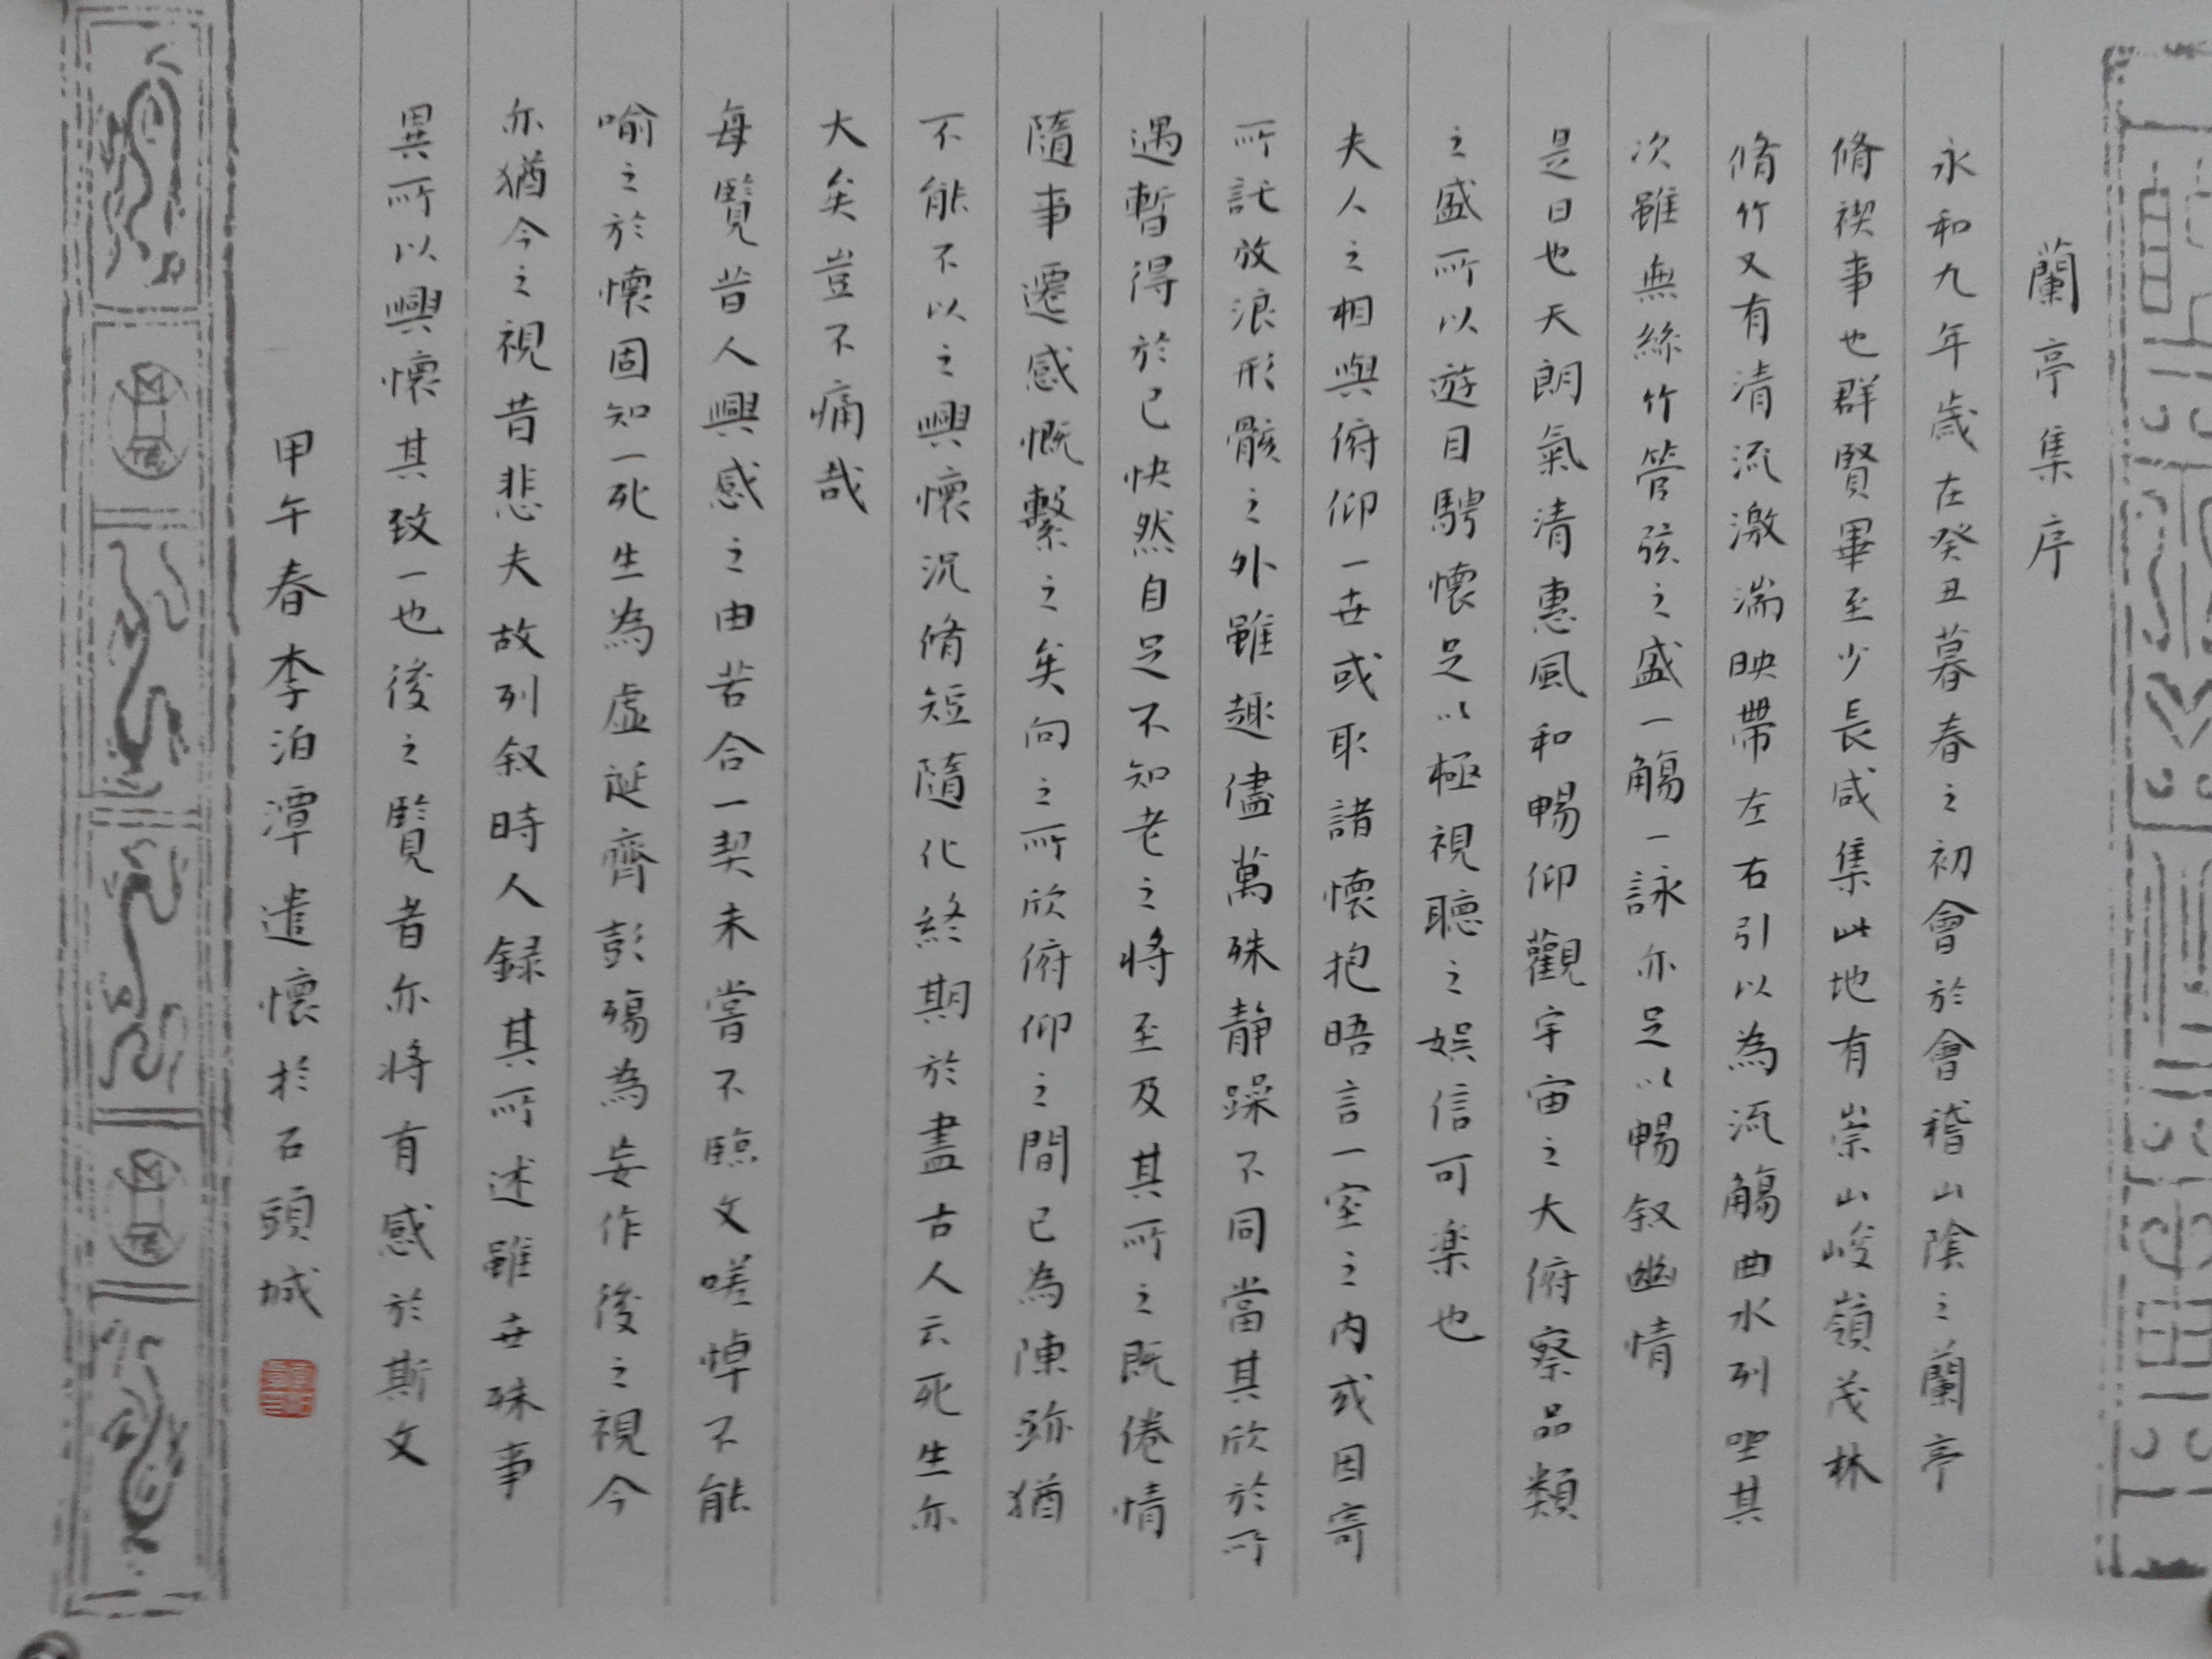 蘭亭集序
永和九年歲在癸丑暮春之初會於會稽山陰之蘭亭
脩禊事也群賢畢至少長咸集此地有崇山峻嶺茂林
脩竹又有清流激湍映帶左右引以為流觴曲水列坐其
次雖無絲竹管弦之盛一觴一詠亦足以暢叙幽情
是日也天朗氣清惠風和暢仰觀宇宙之大俯察品類
之盛所以遊目騁懷足以極視聽之娛信可楽也
夫人之相與俯仰一世或取諸懷抱晤言一室之内或因寄
所託放浪形骸之外雖趣儘萬殊静躁不同當其欣於所
遇暫得於己快然自足不知老之將至及其所之既倦情
隨事遷感慨繫之矣向之所欣俯仰之間已為陳跡猶
不能不以之興懷況脩短隨化終期於盡古人云死生亦
大矣豈不痛哉
每覽昔人興感之由若合一契未嘗不臨文嗟悼不能
喻之於懷固知一死生為虛誕齊彭殤為妄作後之視今
亦猶今之視昔悲夫故列叙時人録其所述雖世殊事
異所以興懷其致一也後之覽者亦將有感於斯文
甲午春李泊潭遣懷於石頭城